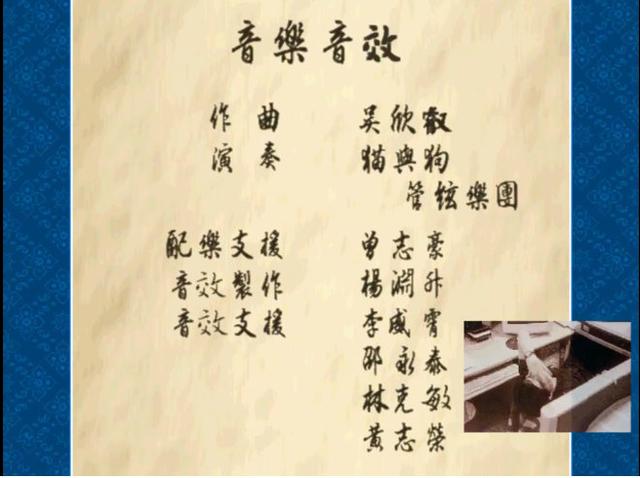 音樂音效
作曲 吳欣叡
演奏 貓與狗
管絃樂團
配樂支援 曾志豪
音效製作 楊淵升
音效支援 李威霄
邵永泰
林克敏
黃志榮